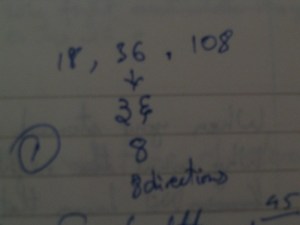 18, 36, 108
↓
8
①
8 directions
45